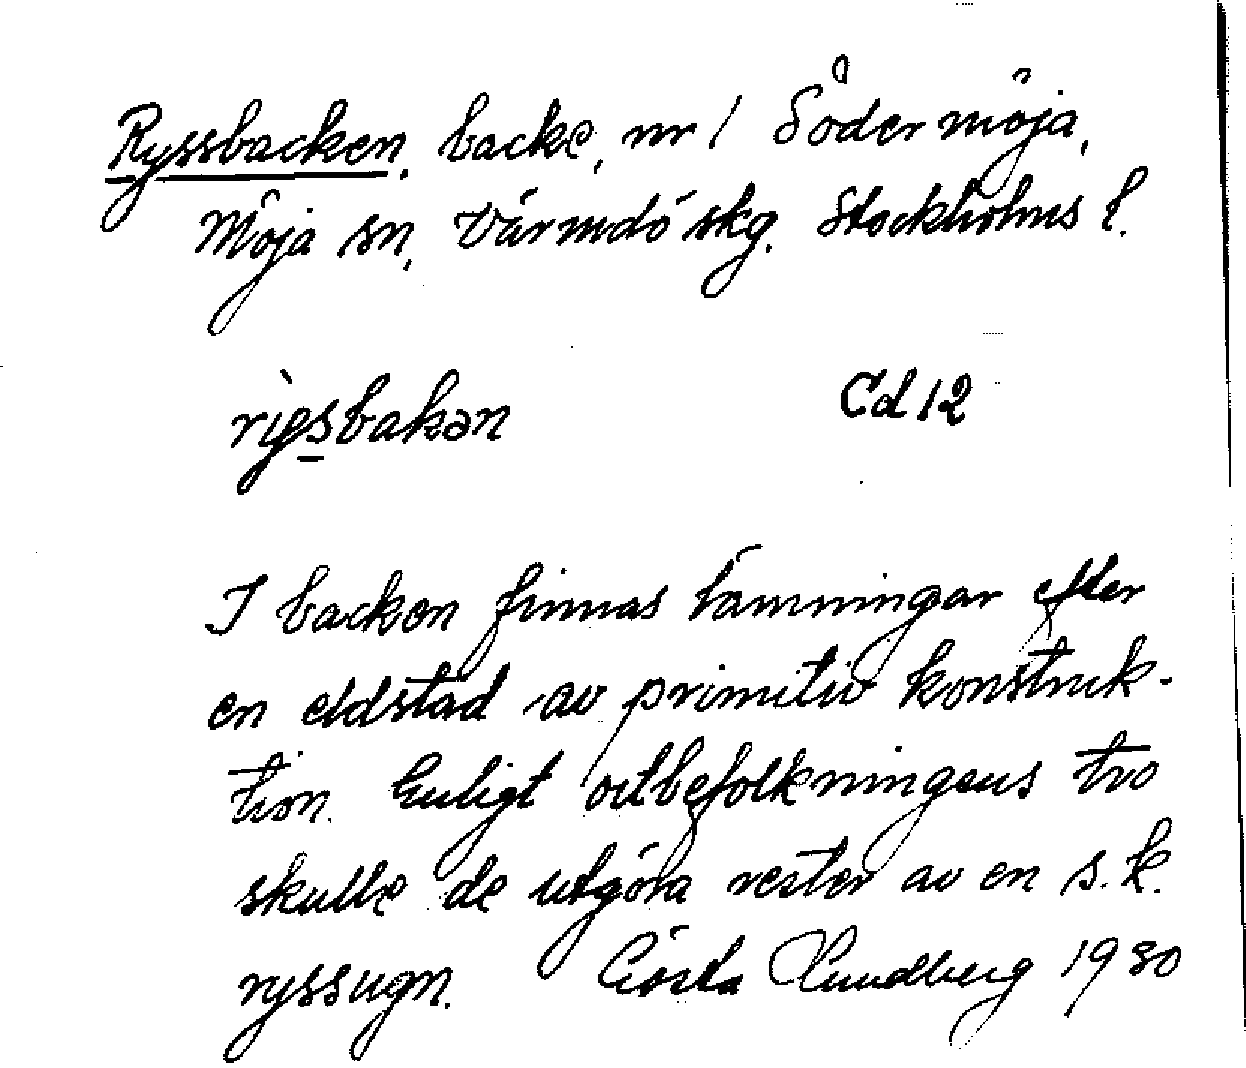 Ryssbacken, backe, nr 1 Södermöja,
Möja sn, Värmdö skg. Stockholms l.
rỳs̱bakən Cd 12
I backen finnas lämningar efter
en eldstad av primitiv konstruk-
tion. Enligt ortbefolkningens tro
skulle de utgöra rester av en s.k.
ryssugn. Gösta Lundberg 1930